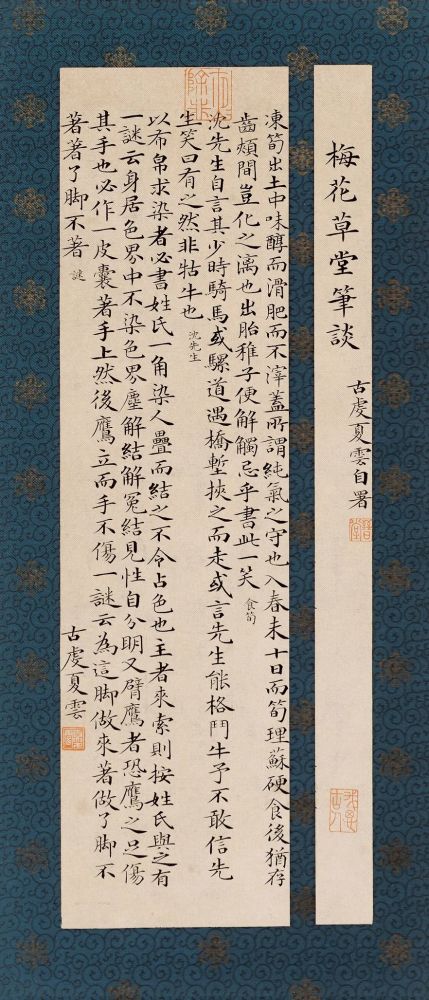 梅花草堂筆談
古虔夏雲自署
凍筍出土中味醇而滑肥而不滓蓋所謂純氣之守也入春未十日而筍理蘇硬食後猶存
齒頰間豈化之漓也出胎稚子便解觸忌乎書此一笑 食筍
沈先生自言其少時騎馬或騾道遇橋塹挾之而走或言先生能格鬥牛予不敢信先
生笑曰有之然非牯牛也 沈先生
以布帛求染者必書姓氏一角染人疊而結之不令占色也主者來索則按姓氏與之有
一謎云身居色界中不染色界塵解結解冤結見性自分明又臂鷹者恐鷹之足傷
其手也必作一皮囊著手上然後鷹立而手不傷一謎云為這脚做來著做了脚不
著著了脚不著 謎
古虔夏雲